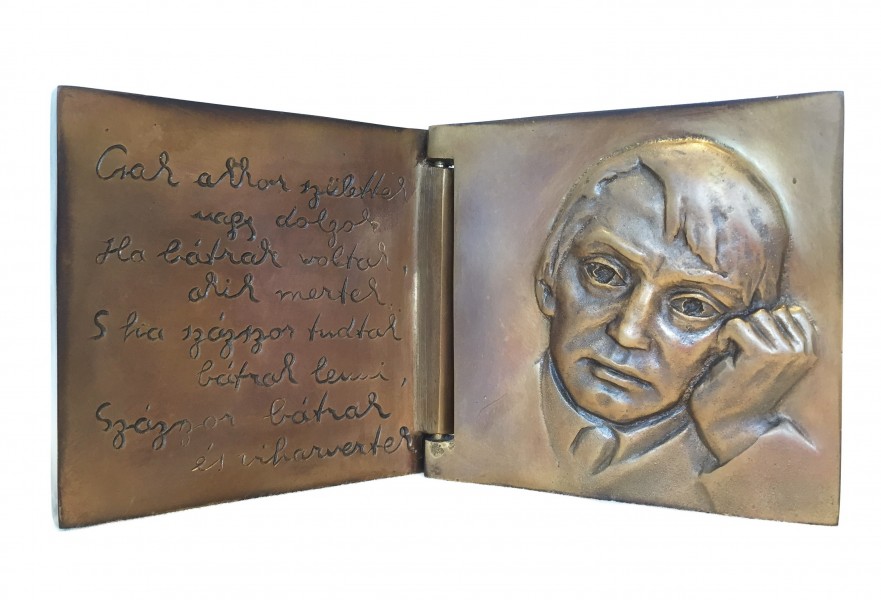 Csak akkor születtek
nagy dolgok
Ha bátrak voltak,
akik mertek
S ha százszor tudtak
bátrak lenni,
Százszor bátrak
és viharvertek